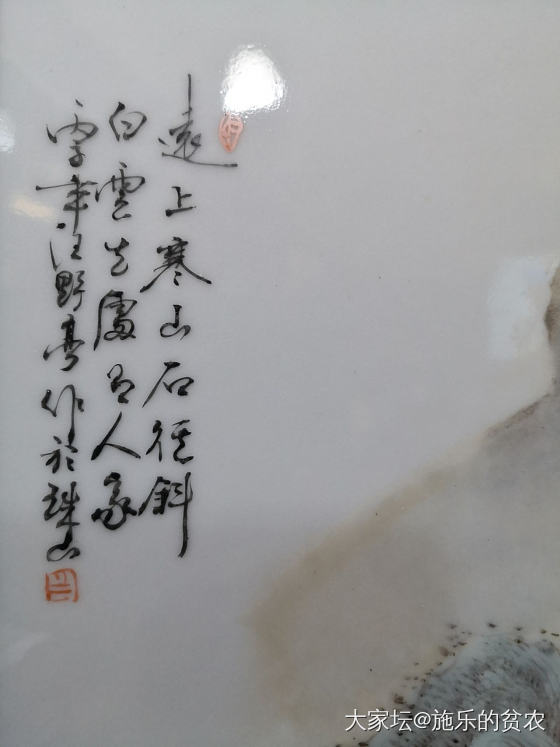 遠上寒山石徑斜
白雲生處有人家
年汪野亭作於珠山
大家坛@施乐的贫农